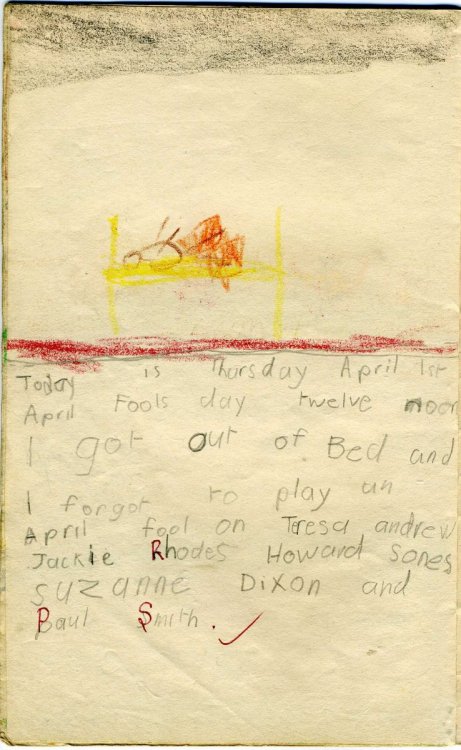 Today is Thursday April 1st
April Fools day twelve noon
I got out of Bed and
I forgot to play an
April fool on Teresa andrew
Jackie Rhodes Howard Sones
Suzanne Dixon and
Paul Smith.